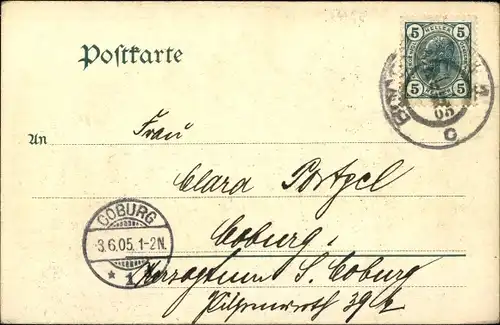 5 HELLER 5
5 5
Postkarte
05
C
An
Frau
Clara
Coburg.
COBURG
-3.6.05.1-2N.
* 1 *
Herzogtum S. Coburg
39